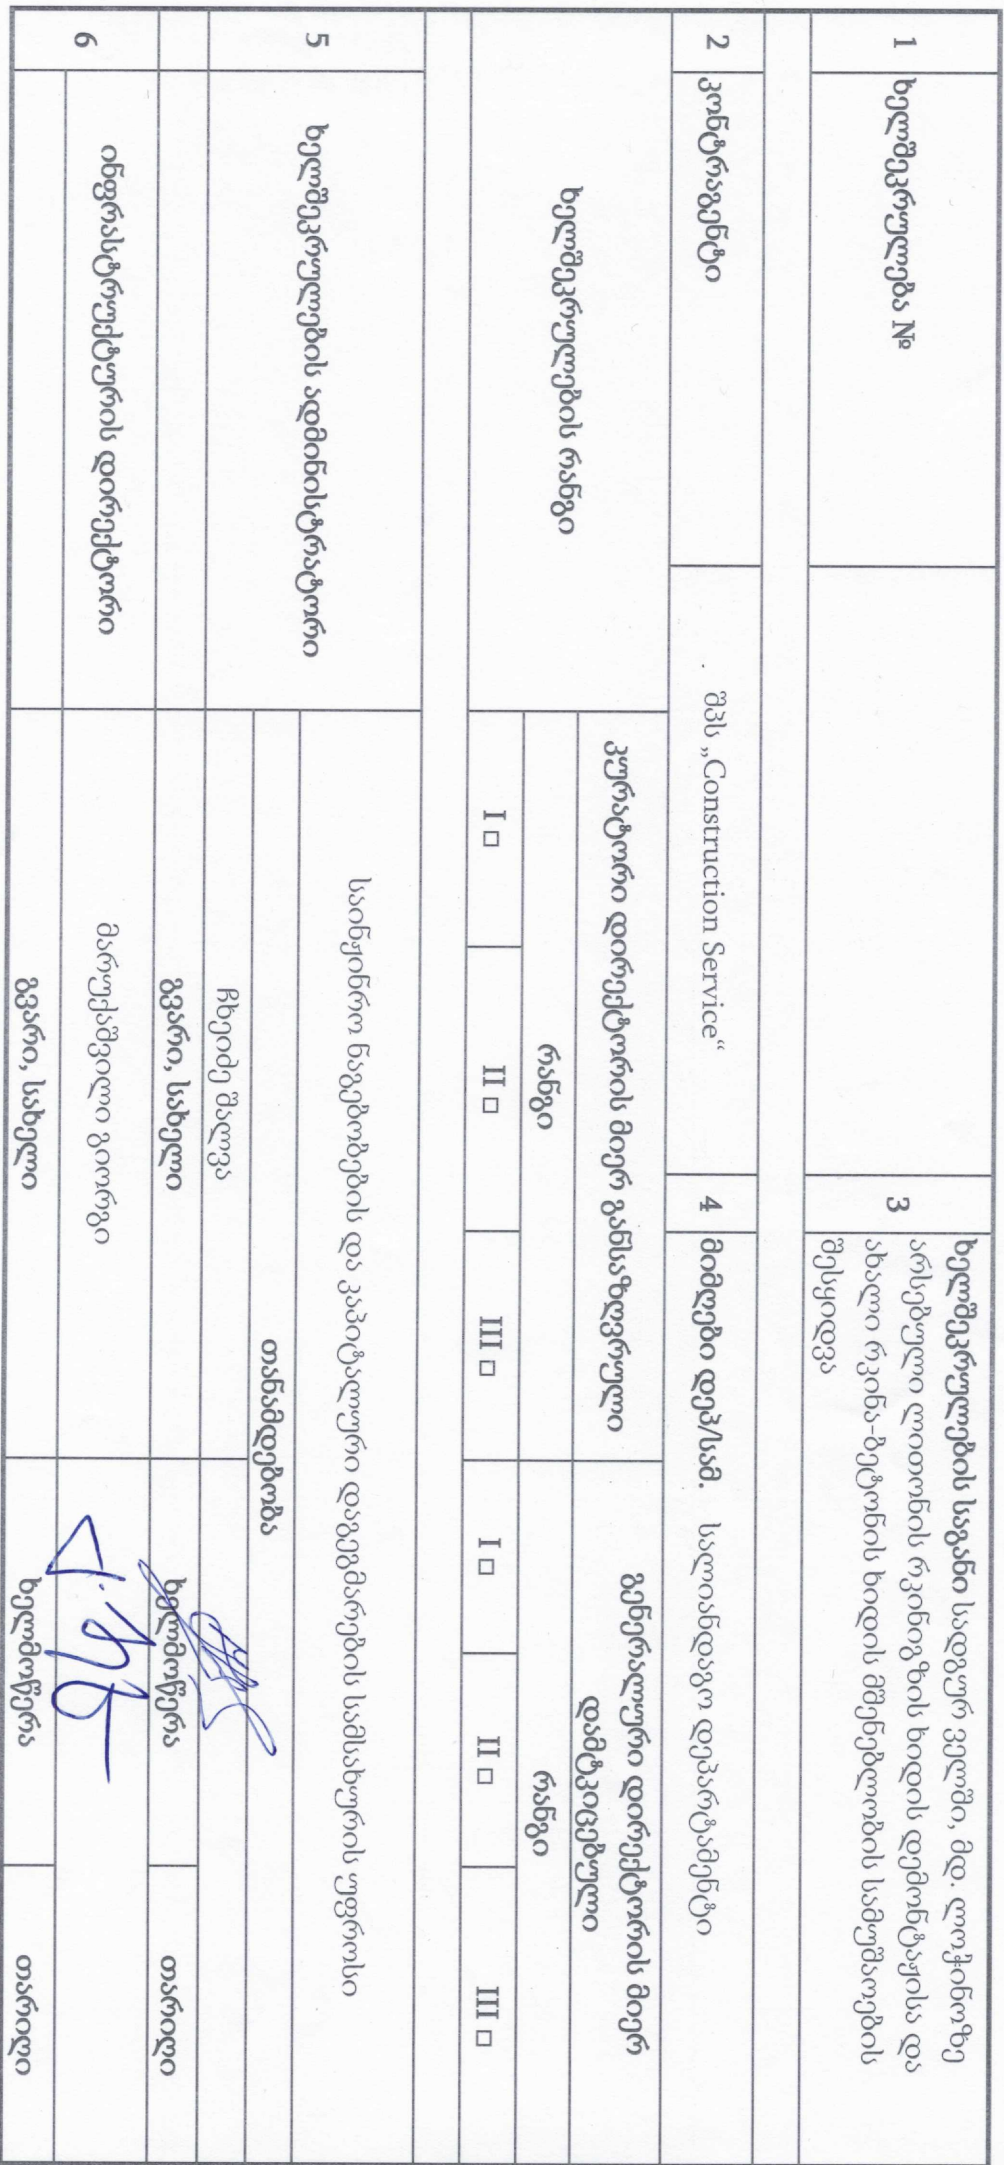 1 ხელშეკრულება №
3 ხელშეკრულების საგანი სადგურ ველში, მდ. ლოჭინოზე
არსებული ლითონის რკინიგზის ხიდის დემონტაჟისა და
ახალი რკინა-ბეტონის ხიდის მშენებლობის სამუშაოების
შესყიდვა
2 კონტრაგენტი შპს „Construction Service“ 4 მიმღები დეპ/სამ. სალიანდაგო დეპარტამენტი
ხელშეკრულების რანგი
კურატორი დირექტორის მიერ განსაზღვრული
გენერალური დირექტორის მიერ
დამტკიცებული
რანგი რანგი
I □ II □ III □ I □ II □ III □
5 ხელშეკრულების ადმინისტრატორი
საინჟინრო ნაგებობების და კაპიტალური დაგეგმარების სამსახურის უფროსი
თანამდებობა
ჩხეიძე შალვა
გვარი, სახელი ხელმოწერა თარიღი
6 ინფრასტრუქტურის დირექტორი
მარუქაშვილი გიორგი
გვარი, სახელი ხელმოწერა თარიღი